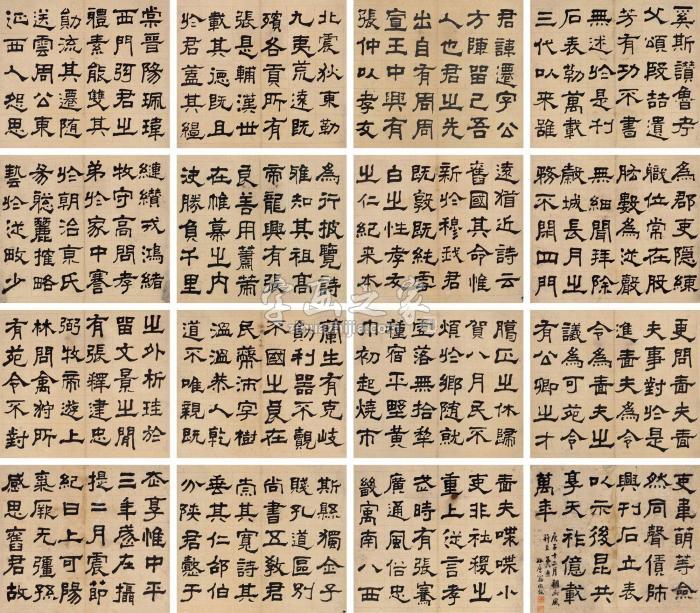 奚斯讚魯考
父頌殷喆遺
芳有功不書
無述於是刊
石表勒萬載
三代以來雖
君諱遷字公
方陳留己吾
人也君之先
出自有周周
宣王中興有
張仲以孝友
北震狄東勤
九夷荒遠既
殯各貢所有
張是輔漢世
載其德既且
於君蓋其繵
棠晉陽珮瑋
西門君之
體素能雙其
勛流其遷隨
送雲周公東
征西人怨思
為郡吏隱練
職位常在股
肱數為從嚴
無細聞拜除
穀城長月之
務不閉四門
遠猶近詩云
舊國其命惟
新於穆我君
既敦既純雪
白之性孝友
之仁紀來本
為行披覽詩
雅知其祖高
帝龍興有張
良善用籌策
在帷幕之內
決勝負千里
纏纘戎鴻緒
牧守高問孝
弟於家中謇
於朝治京氏
易聰麗權略
藝於從畋少
更問嗇夫嗇
夫事對於是
進嗇夫為令
令為嗇夫之
議為可苑令
有公卿之才
臘正之休歸
賀八月民不
煩於鄉隨就
虛落無拾犁
種宿平野黃
巾初起燒市
蘭生有克岐
勛利器不覿
不國之良在
民齊沛字樹
溫溫恭人乾
道不唯親既
之外析珪於
留文景之間
有張釋建忠
弼牧帝遊上
林問禽狩所
有苑令不對
吏韋萌等僉
然同聲僨師
興刊石立表
以示後昆共
享天祚億載
萬年
嗇夫喋喋小
吏非社稷之
重上從言孝
武時有張騫
廣通風俗
畿寓南八西
斯縣獨全子
賤孔道區別
尚書五教君
崇其寬詩其
垂其仁邵伯
分陝君懿于
忝享惟中平
三年歲在攝
提二月震節
紀日上陽
氣厥无彊孫
感思舊君故